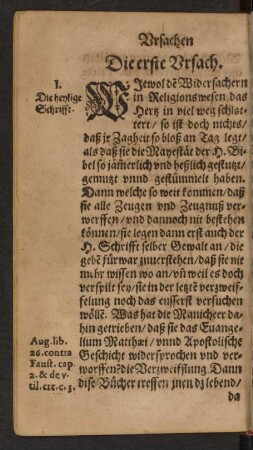 Vrsachen
Die erste Vrsach.
I.
Die heylige
Schrifft.
WJewol dē Widersachern
in Religionswesen das
Hertz in viel weg schlot-
tert / so ist doch nichts /
daß jr Zagheit so bloß an Tag legt /
als daß sie die Mayestät der H. Bi-
bel so jām̄erlich vnd heßlich gestutzt /
genutzt vnnd gestümmelt haben.
Dann welche so weit kommen / daß
sie alle Zeugen vnd Zeugnuß ver-
werffen / vnd dannoch nit bestehen
können / sie legen dann erst auch der
H. Schrifft selber Gewalt an / die
gebē fürwar zuuerstehen / daß sie nie
mehr wissen wo an / vn̄ weil es doch
verspilt sey / sie in der letzte verzweif-
felung noch das eusserst versuchen
wöllē. Was hat die Manicheer da-
hin getrieben / daß sie das Euange-
lium Matthæi / vnnd Apostolische
Geschicht widersprochen vnd ver-
worffen? die Verzweiffung. Dann
dise Bücher treffen jnen dz lebend /
da
Aug. lib.
26. contra
Faust. cap
2. & de v-
til. cre. c. 3.